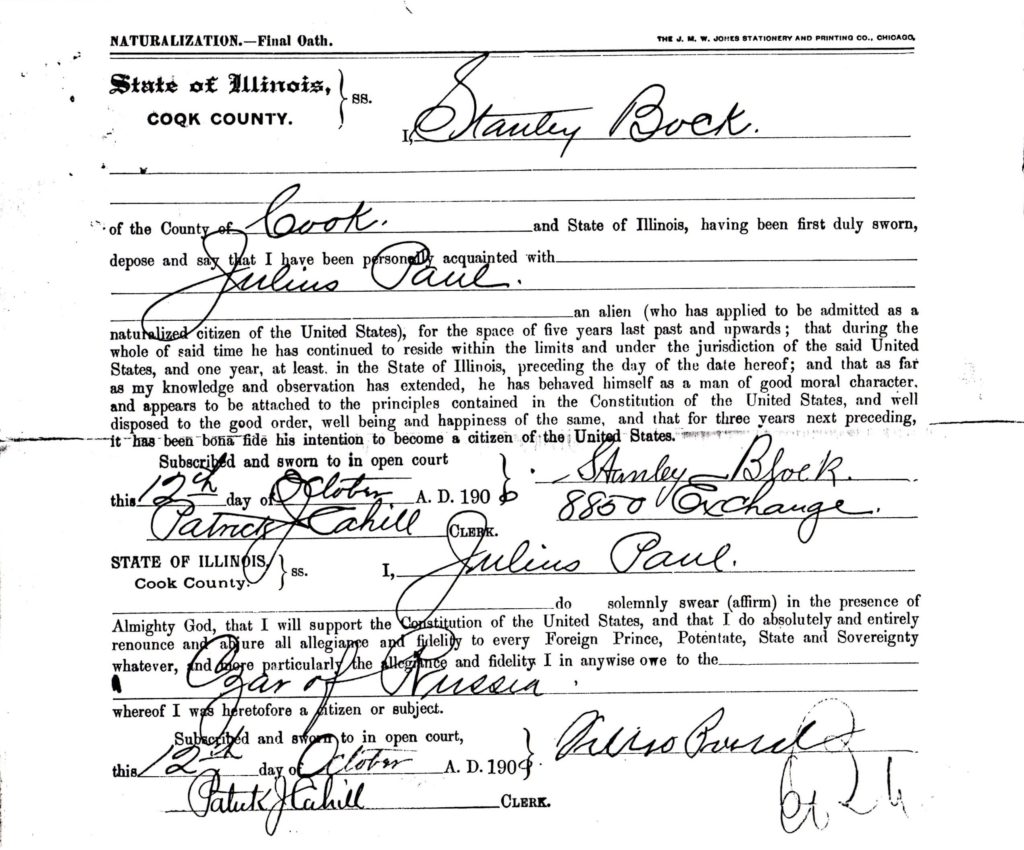 NATURALIZATION.—Final Oath.
THE J. M. W. JONES STATIONERY AND PRINTING CO., CHICAGO,
State of Illinois, ss.
COOK COUNTY.
I, Stanley Bock.
of the County of Cook. and State of Illinois, having been first duly sworn,
depose and say that I have been personally acquainted with
Julius Paul.
an alien (who has applied to be admitted as a
naturalized citizen of the United States), for the space of five years last past and upwards; that during the
whole of said time he has continued to reside within the limits and under the jurisdiction of the said United
States, and one year, at least. in the State of Illinois, preceding the day of the date hereof; and that as far
as my knowledge and observation has extended, he has behaved himself as a man of good moral character,
and appears to be attached to the principles contained in the Constitution of the United States, and well
disposed to the good order, well being and happiness of the same, and that for three years next preceding,
it has been bona fide his intention to become a citizen of the United States.
Subscribed and sworn to in open court
Stanley Block.
this 12th day of October A. D. 190
8850 Exchange.
Patrick J Cahill CLERK.
STATE OF ILLINOIS, ss.
Cook County.
I, Julius Paul.
do solemnly swear (affirm) in the presence of
Almighty God, that I will support the Constitution of the United States, and that I do absolutely and entirely
renounce and abjure all allegiance and fidelity to every Foreign Prince, Potentate, State and Sovereignty
whatever, and more particularly the allegiance and fidelity I in anywise owe to the
Czar of Russia.
whereof I was heretofore a citizen or subject.
Subscribed and sworn to in open court,
this 12th day of October A. D. 190
Patrick J Cahill CLERK.